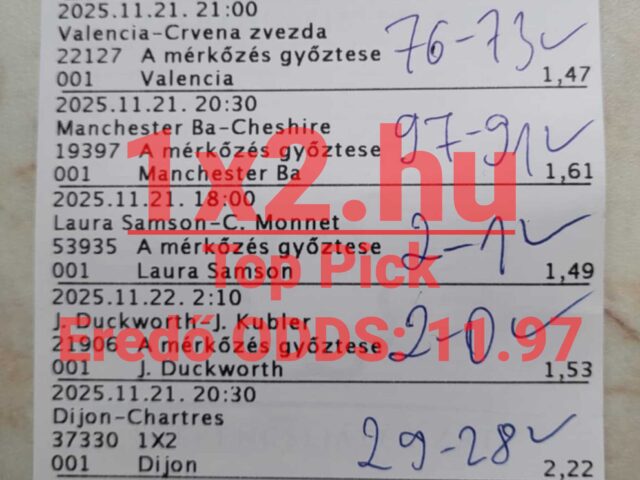 2025.11.21. 21:00
Valencia-Crvena zvezda
22127 A mérkőzés győztese 76-73✓
001 Valencia 1,47
2025.11.21. 20:30
Manchester Ba-Cheshire
19397 A mérkőzés győztese 97-91✓
001 Manchester Ba 1,61
1x2.hu
2025.11.21. 18:00
Laura Samson-C. Monnet
53935 A mérkőzés győztese 2-1✓
001 Laura Samson 1,49
Top Pick
2025.11.22. 2:10
J. Duckworth-J. Kubler
21906 A mérkőzés győztese 2-0✓
001 J. Duckworth 1,53
Eredő ODDS: 11.97
2025.11.21. 20:30
Dijon-Chartres
37330 1X2 29-28✓
001 Dijon 2,22